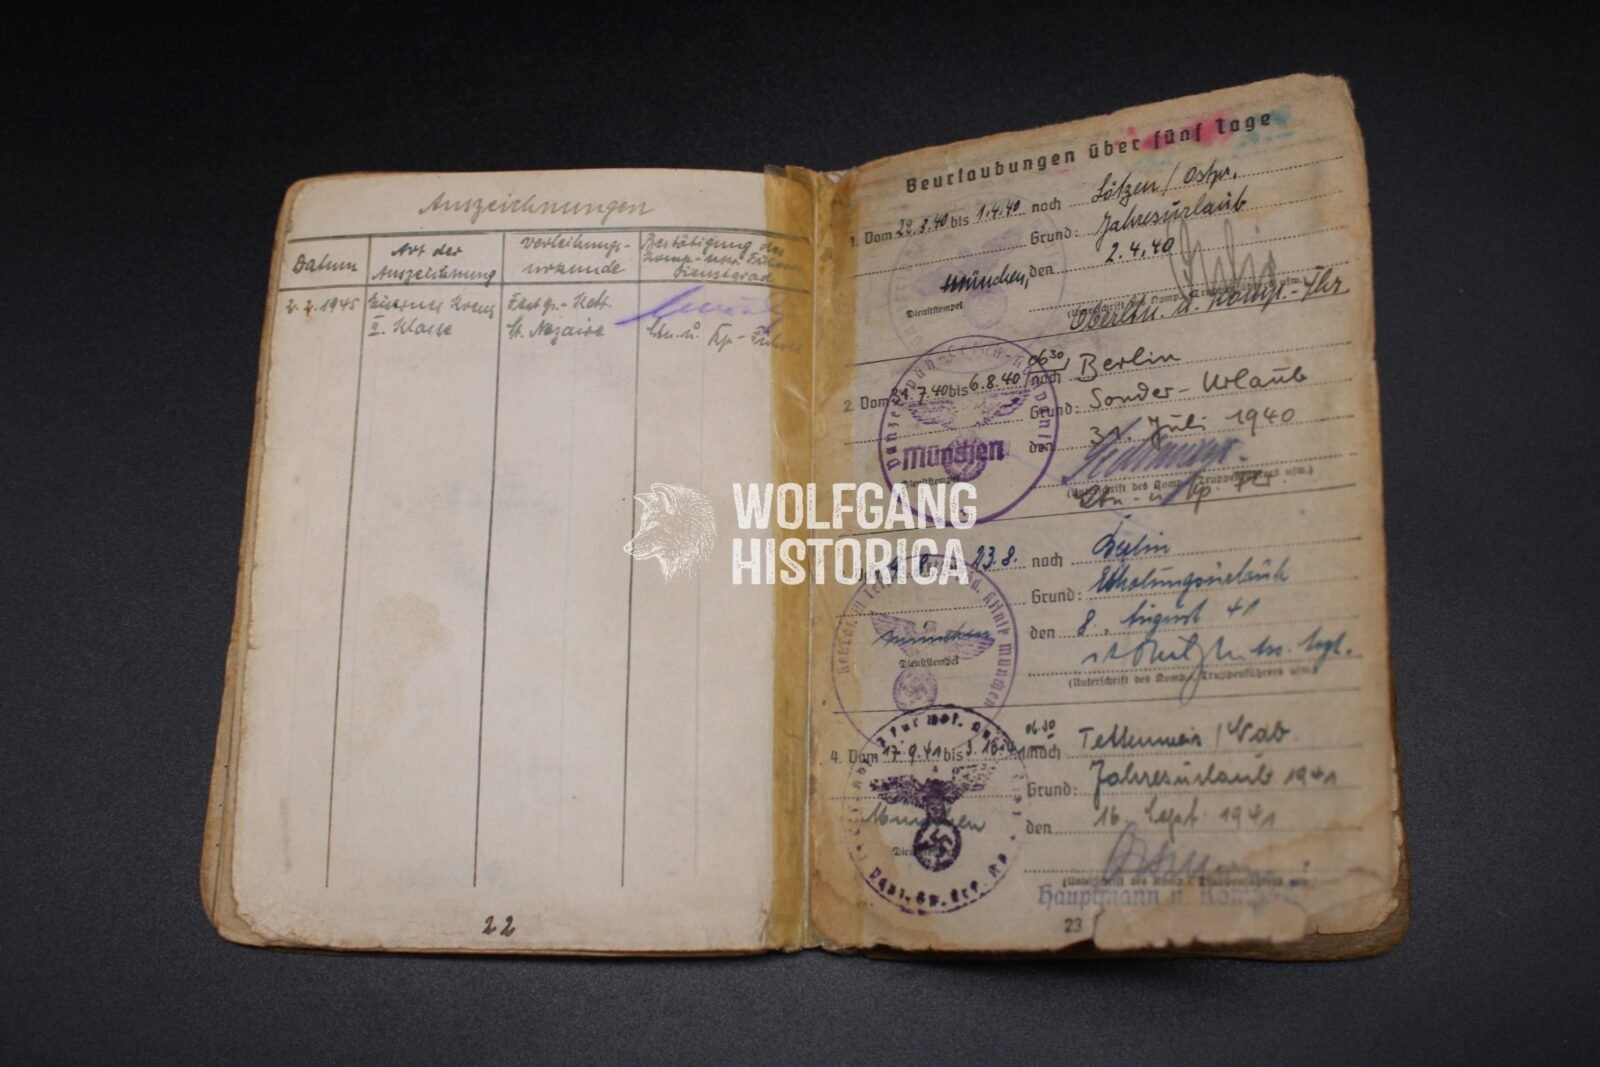 Auszeichnungen
Datum
Art der Auszeichnung
Verleihungs-urkunde
Bestätigung des Komp.- usw. Führers Dienstgrad
2.2.1945
Eisernes Kreuz
II. Klasse
Festgs.-Kdt.
St. Nazaire
Ltn. u. Kp.-Führer
22
WOLFGANG
HISTORICA
Beurlaubungen über fünf Tage
1. Vom 22.3.40 bis 1.4.40 nach Lötzen / Ostpr.
Grund: Jahresurlaub
München, den 2.4.40
Dienststempel
Oberltn. u. Komp.-Fhr
2. Vom 31.7.40 bis 6.8.40 06³⁰ nach Berlin
Grund: Sonder-Urlaub
München
den 31. Juli 1940
Dienststempel
(Unterschrift des Komp.-, Truppenführers usw.)
Ltn. u. Kp.
23.8. nach Berlin
Grund: Erholungsurlaub
München
den 8. August 41
Dienststempel
(Unterschrift des Komp.-, Truppenführers usw.)
4. Vom 17.9.41 bis 06.30 nach
Grund: Jahresurlaub 1941
München
den 16. Sept. 1941
(Unterschrift des Komp.-, Truppenführers
Hauptmann u.
23